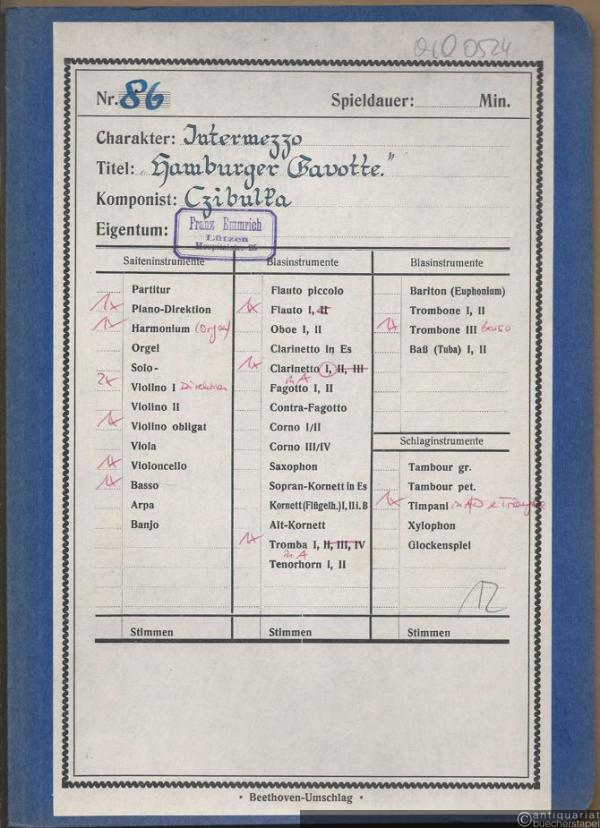 010 0524
Nr. 86 Spieldauer: Min.
Charakter: Intermezzo
Titel: „Hamburger Gavotte."
Komponist: Czibulka
Eigentum: Franz Emmrich
Lützen
Saiteninstrumente
Partitur
1x Piano-Direktion
1x Harmonium (Orgel)
Orgel
Solo-
2x Violino I Direktion
Violino II
1x Violino obligat
Viola
1x Violoncello
1x Basso
Arpa
Banjo
Stimmen
Blasinstrumente
Flauto piccolo
1x Flauto I, II
Oboe I, II
Clarinetto in Es
1x Clarinetto I, II, III
in A
Fagotto I, II
Contra-Fagotto
Corno I/II
Corno III/IV
Saxophon
Sopran-Kornett in Es
Kornett (Flügelh.) I, II i. B
Alt-Kornett
1x Tromba I, II, III, IV
in A
Tenorhorn I, II
Stimmen
Blasinstrumente
Bariton (Euphonium)
Trombone I, II
1x Trombone III basso
Baß (Tuba) I, II
Schlaginstrumente
Tambour gr.
Tambour pet.
1x Timpani in A D e
Xylophon
Glockenspiel
12
Stimmen
• Beethoven-Umschlag •
antiquariat
buecherstapel